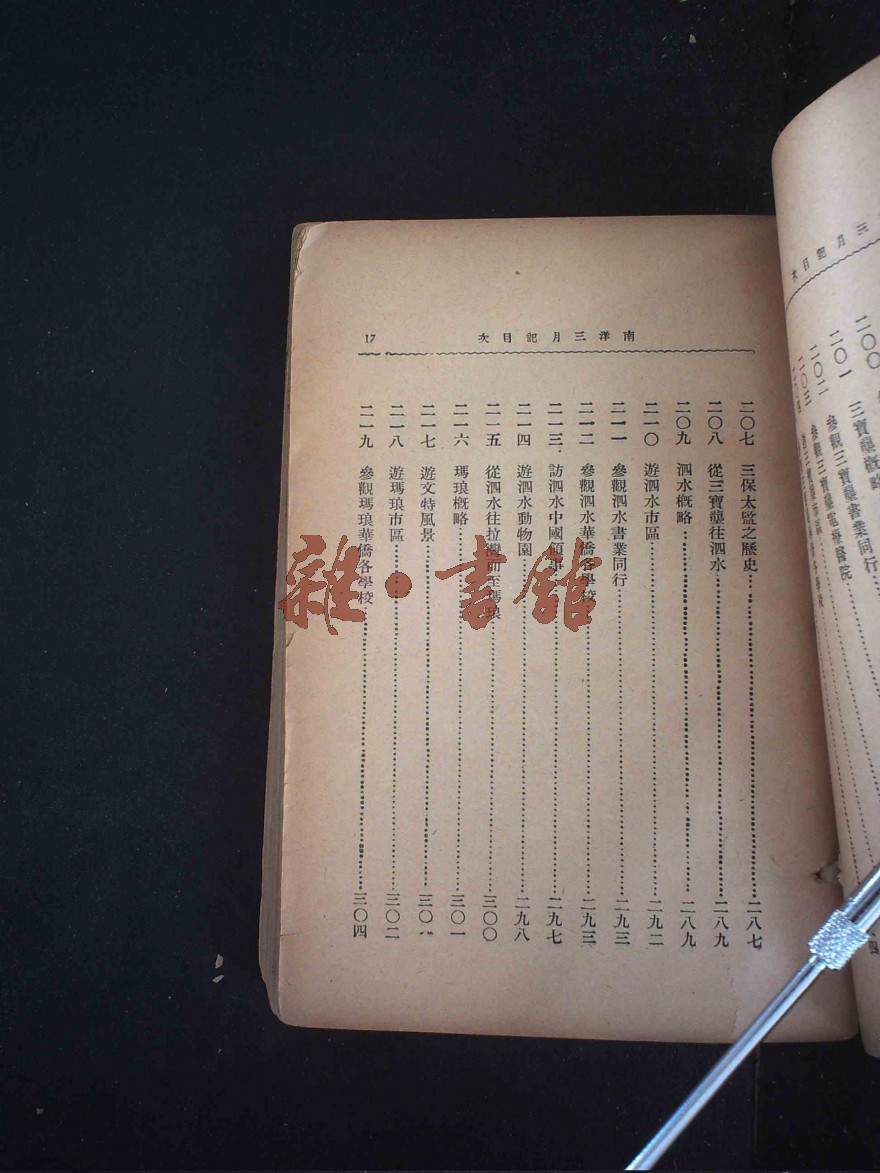 南洋三月記目次
17
二〇七 三保太監之歷史 二八七
二〇八 從三寶壟往泗水 二八九
二〇九 泗水概略 二八九
二一〇 遊泗水市區 二九二
二一一 參觀泗水書業同行 二九三
二一二 參觀泗水華僑各學校 二九三
二一三 訪泗水中國領事 二九七
二一四 遊泗水動物園 二九八
二一五 從泗水往拉灣而至瑪琅 三〇〇
二一六 瑪琅概略 三〇一
二一七 遊文特風景
二一八 遊瑪琅市區 三〇二
二一九 參觀瑪琅華僑各學校 三〇四
雜·書館
三月記目次
二〇〇 三寶壟概略
二〇一 三寶壟書業同行
二〇二 參觀三寶壟電療醫院
二〇三